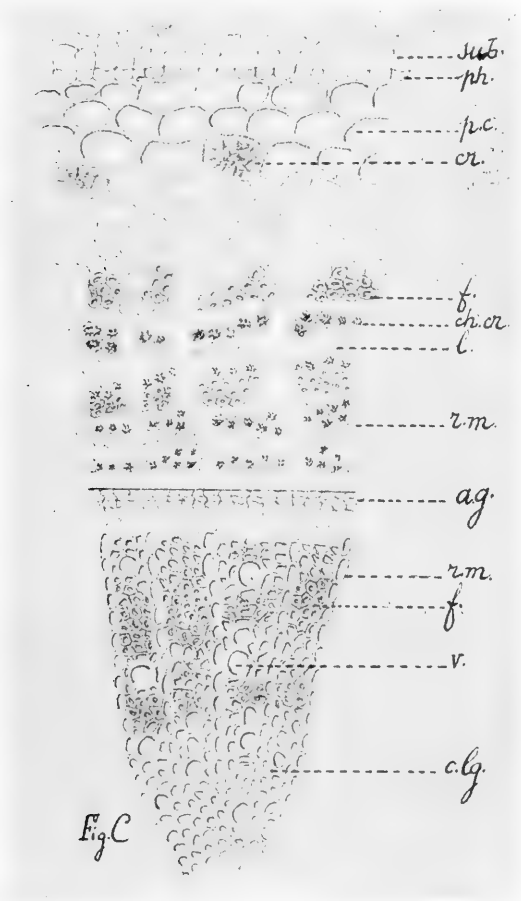 sub.
ph.
p.c.
cr.
f.
ch.cr.
l.
r.m.
a.g.
r.m.
f.
v.
c.lg.
Fig. C